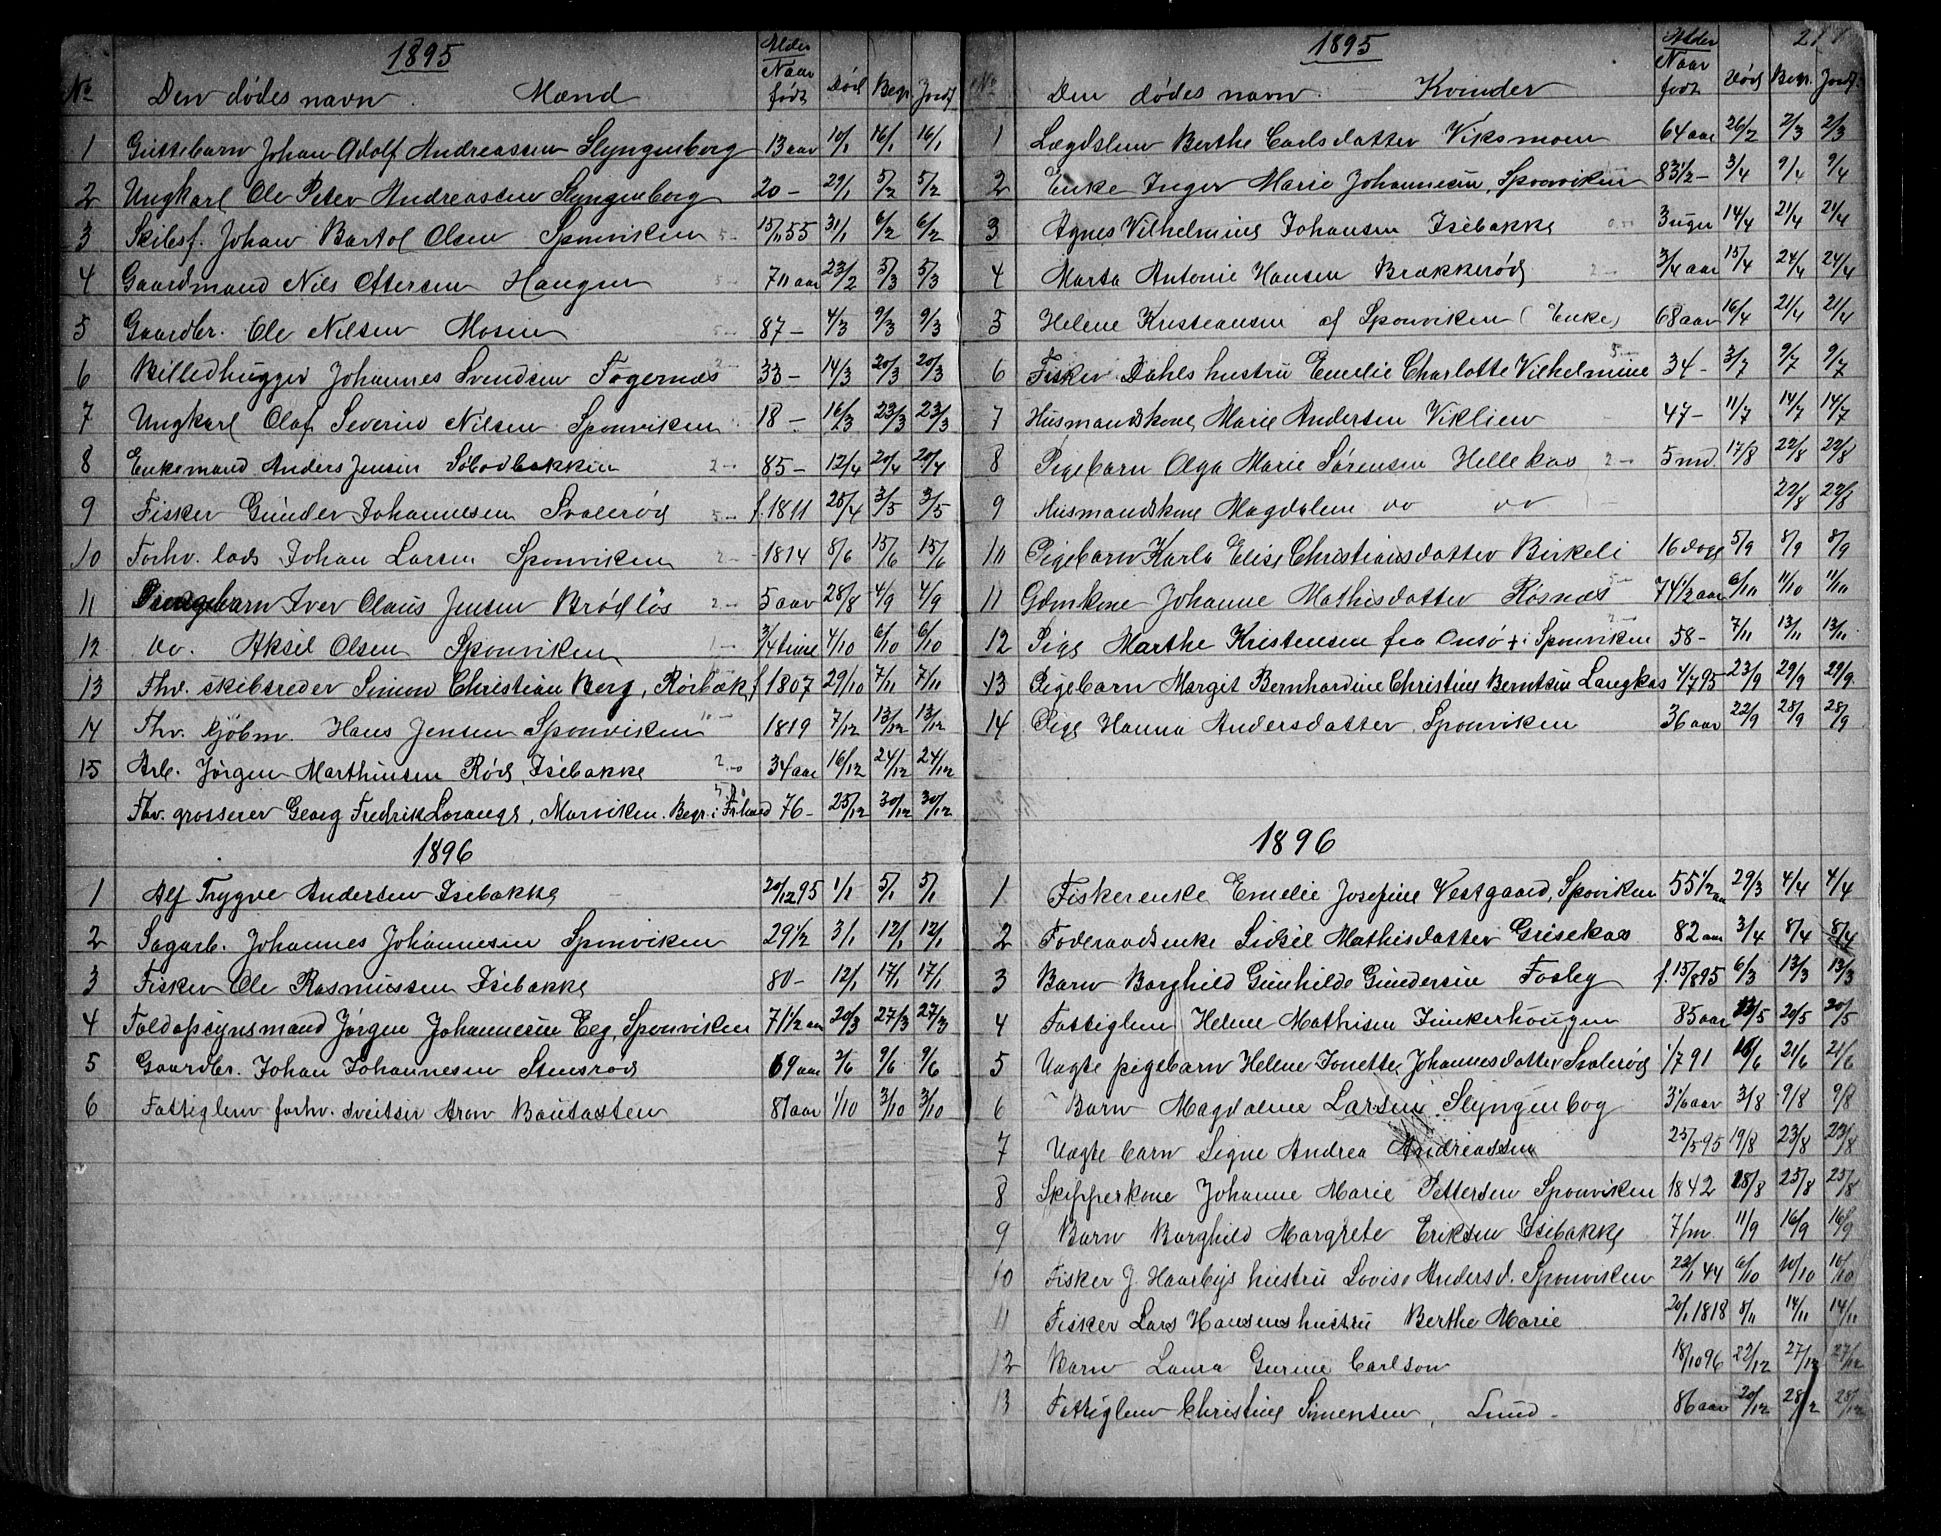 1895
No Den dödes navn. Mænd Alder Naar födt Död Begr. Jordf.
1 Guttebarn Johan Adolf Andreassen Slyngenborg 13 aar 10/1 16/1 16/1
2 Ungkarl Ole Peter Andreassen Slyngenborg 20 – 29/1 5/2 5/2
3 Skibsf. Johan Bartol Olsen Sponviken 15/11 55 31/1 6/2 6/2
4 Gaardmand Nils Ottersen Haugen aar 23/2 5/3 5/3
5 Gaardbr. Ole Nilsen Mosen 87 – 4/3 9/3 9/3
6 Billedhugger Johannes Svendsen Fogernæs 33 – 14/3 20/3 20/3
7 Ungkarl Olaf Severin Nilsen Sponviken 18 – 16/3 23/3 23/3
8 Enkemand Anders Jensen 85 – 12/4 20/4 20/4
9 Fisker Gunder Johannesen Svalerød f. 1811 25/4 3/5 3/5
10 Forhv. lods Johan Larsen Sponviken 1814 8/6 15/6 15/6
11 Drengebarn Iver Claus Jensen Brødløs 5 aar 28/8 4/9 4/9
12 do. Aksel Olsen Sponviken 3/4 time 4/10 6/10 6/10
13 Fhv. skibsreder Simon Christian Berg, Rörbæk f 1807 29/10 7/11 7/11
14 Fhv. kjöbm. Hans Jensen Sponviken 1819 7/12 13/12 13/12
15 Arb. Jörgen Marthinsen Röd, Isebakke 34 aar 16/12 24/12 24/12
Fhv. grosserer Georg Fredrik Lorange, Morviken. Begr. i F.hald 76 – 25/12 30/12 30/12
1896
1 Alf Trygve Andersen Isebakke 20/12 95 1/1 5/1 5/1
2 Sagarb. Johannes Johannesen Sponviken 29 1/2 3/1 12/1 12/1
3 Fisker Ole Rasmussen Isebakke 80 – 12/1 17/1 17/1
4 Toldopsynsmand Jörgen Johannesen Eeg, Sponviken 71 1/2 aar 20/3 27/3 27/3
5 Gaardbr. Johan Johannesen Stensrød 69 aar 2/6 9/6 9/6
6 Fattiglem forhv. sveitser Aron Bautasten 81 aar 1/10 3/10 3/10
1895
No Den dödes navn. Kvinder Alder Naar födt Död Begr. Jordf.
1 Lægdslem Berthe Carlsdatter Viksmoen 64 aar 26/2 2/3 2/3
2 Enke Inger Marie Johannesen, Sponviken 83 1/2 – 3/4 9/4 9/4
3 Agnes Vilhelmine Johansen Isebakke 3 uger 14/4 21/4 21/4
4 Marta Antonie Hansen Brækkerød 3/4 aar 15/4 24/4 24/4
5 Helene Kristiansen af Sponviken (Enke) 68 aar 16/4 21/4 21/4
6 Fisker Dahls hustru Emelie Charlotte Vilhelmine 34 – 3/7 9/7 9/7
7 Husmandskone Marie Andersen Viklien 47 – 11/7 14/7 14/7
8 Pigebarn Olga Marie Sørensen Hellekas 5 md. 17/8 22/8 22/8
9 Husmandskone Magdalene do do 22/8 22/8
10 Pigebarn Karla Elise Christiansdatter Birkeli 16 dage 5/9 8/9 8/9
11 Gdmkone Johanne Mathisdatter Røsnæs 74 1/2 aar 6/10 11/10 11/10
12 Pige Marthe Kristensen fra Onsö + i Sponviken 58 – 7/11 13/11 13/11
13 Pigebarn Margit Bernhardine Christine Berntsen Langkas 4/7 95 23/9 29/9 29/9
14 Pige Hanna Andersdatter Sponviken 36 aar 22/9 28/9 28/9
1896
1 Fiskerenke Emelie Josefine Vestgaard, Sponviken 55 1/2 aar 29/3 4/4 4/4
2 Foderaadsenke Sidsel Mathisdatter Grisekas 82 aar 3/4 8/4 8/4
3 Barn Borghild Gunhilde Gundersen Fosby f. 15/8 95 6/3 13/3 13/3
4 Fattiglem Helene Mathisen Junkerhougen 85 aar 13/5 20/5 20/5
5 Uægte pigebarn Helene Jonette Johannesdatter Svalerød 1/7 91 16/6 21/6 21/6
6 Barn Magdalene Larsen Slyngenbog 3 1/6 aar 3/8 9/8 9/8
7 Uægte barn Signe Andrea Andreassen 25/5 95 19/8 23/8 23/8
8 Skipperkone Johanne Marie Pettersen Sponviken 1842 18/8 25/8 25/8
9 Barn Borghild Margrete Eriksen Isebakke 7/m 11/9 16/9 16/9
10 Fisker J. Haarbys hustru Lovise Andersd. Sponviken 22/1 44 6/10 10/10 10/10
11 Fisker Lars Hansens hustru Berthe Marie 20/1 1818 8/11 14/11 14/11
12 Barn Laura Gurine Carlson 18/10 96 22/12 27/12 27/12
13 Fattiglem Christine Simensen, Lund – 86 aar 20/12 28/12 28/12